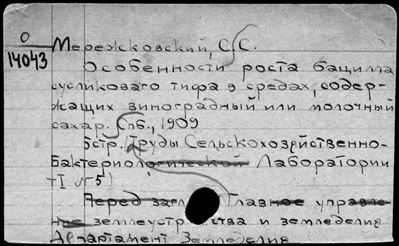 0
14043
Мережковский, С.С.
Особенности роста бацилла
сусликоваго тифа в средах, содер-
жащих виноградный или молочный
сахар. Спб., 1909
5стр. (Труды Сельскохозяйственно-
Бактериологической Лаборатории
тI №5)
Перед загл. Главное управле-
ние землеустройства и земледелия
Департамент Земледелия